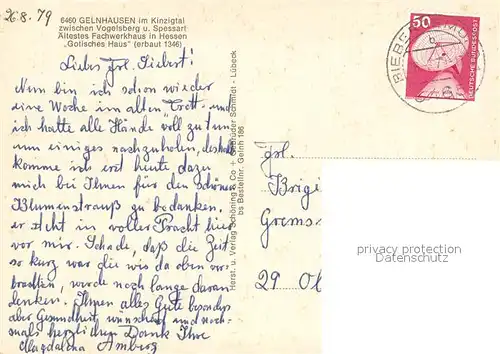 26.8.79
6460 GELNHAUSEN im Kinzigtal
zwischen Vogelsberg u. Spessart
Ältestes Fachwerkhaus in Hessen
„Gotisches Haus" (erbaut 1346)
Liebes Frl. Siebert!
Nun bin ich schon wieder
eine Woche im alten Trott und
ich hatte alle Hände voll zu tun
um einiges nachzuholen, deshalb
komme ich erst heute, dazu
mich bei Ihnen für den schönen
Blumenstrauß zu bedanken,
er steht in voller Pracht hier
vor mir. Schade, daß die Zeit
so kurz war die wir da oben ver-
brachten, werde noch lange daran
denken. Ihnen alles Gute besonders
aber Gesundheit wünscht und noch-
mals herzlichen Dank Ihre
Magdalena Amberg
Herst. u. Verlag Schöning & Co + Gebrüder Schmidt - Lübeck
bs Bestellnr. Gelnh 186
50
DEUTSCHE BUNDESPOST
BIEBER
Frl.
Brige
Grems
29 Ol
privacy protection
Datenschutz